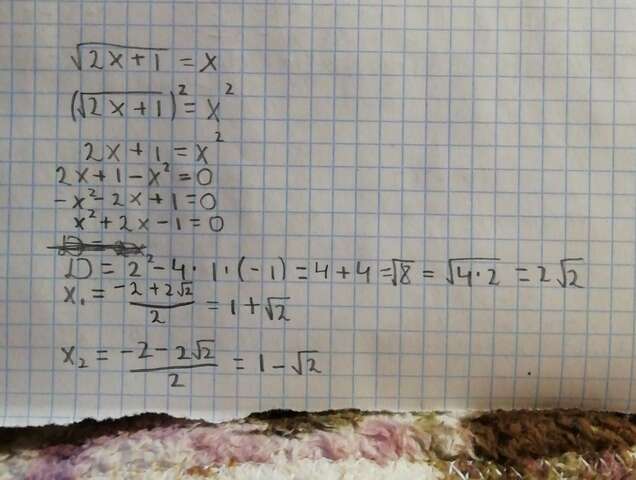 √(2x+1) = x
(√(2x+1))² = x²
2x+1 = x²
2x+1-x² = 0
-x²-2x+1=0
x²+2x-1=0
D = 2²-4·1·(-1) = 4+4 = √8 = √(4·2) = 2√2
x₁ = (-2+2√2)/2 = 1+√2
x₂ = (-2-2√2)/2 = 1-√2